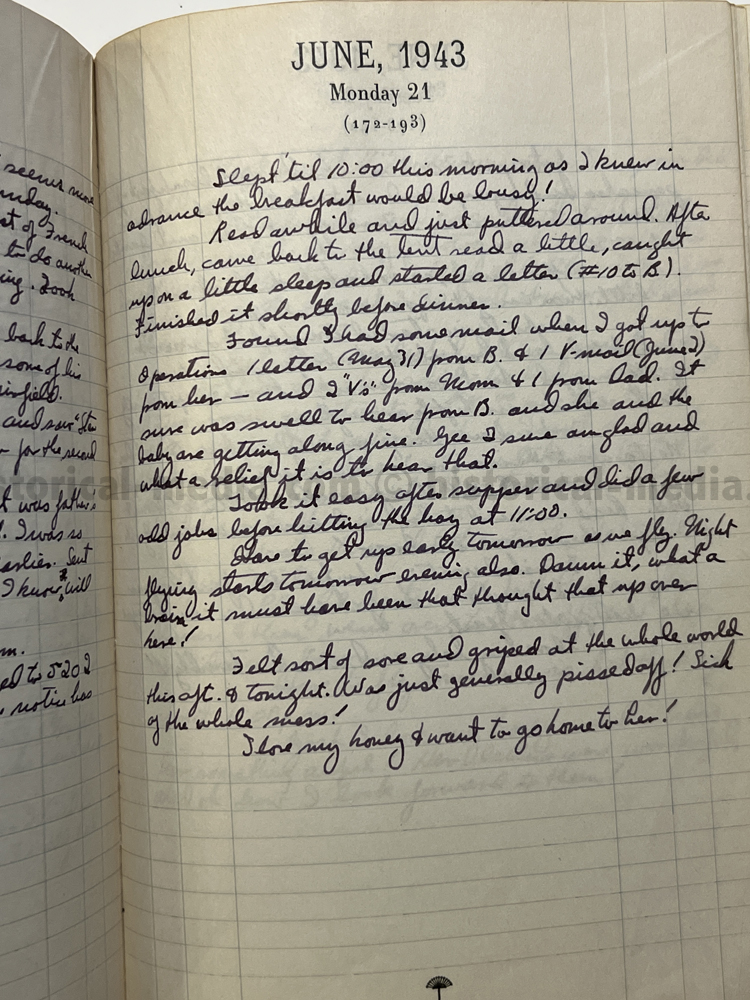 seems more
unday.
st of French
to do another
ing. Took
back to the
some of his
airfield.
and saw "Star
for the second
t was father's
! I was so
earlies. Sent
I know, will
m.
ed to 5202
notice has
JUNE, 1943
Monday 21
(172-193)
Slept 'til 10:00 this morning as I knew in
advance the breakfast would be lousy!
Read awhile and just puttered around. After
lunch, came back to the tent read a little, caught
up on a little sleep and started a letter (#10 to B).
Finished it shortly before dinner.
Found I had some mail when I got up to
Operations 1 letter (May 31) from B. & 1 V-mail (June 2)
from her — and 2 "V's" from Mom & 1 from Dad. It
sure was swell to hear from B. and she and the
baby are getting along fine. Gee I sure am glad and
what a relief it is to hear that.
Took it easy after supper and did a few
odd jobs before hitting the hay at 11:00.
Have to get up early tomorrow as we fly. Night
flying starts tomorrow evening also. Damn it, what a
brain it must have been that thought that up over
here!
Felt sort of sore and griped at the whole world
this aft. & tonight. Was just generally pissed off! Sick
of the whole mess!
I love my honey & want to go home to her!